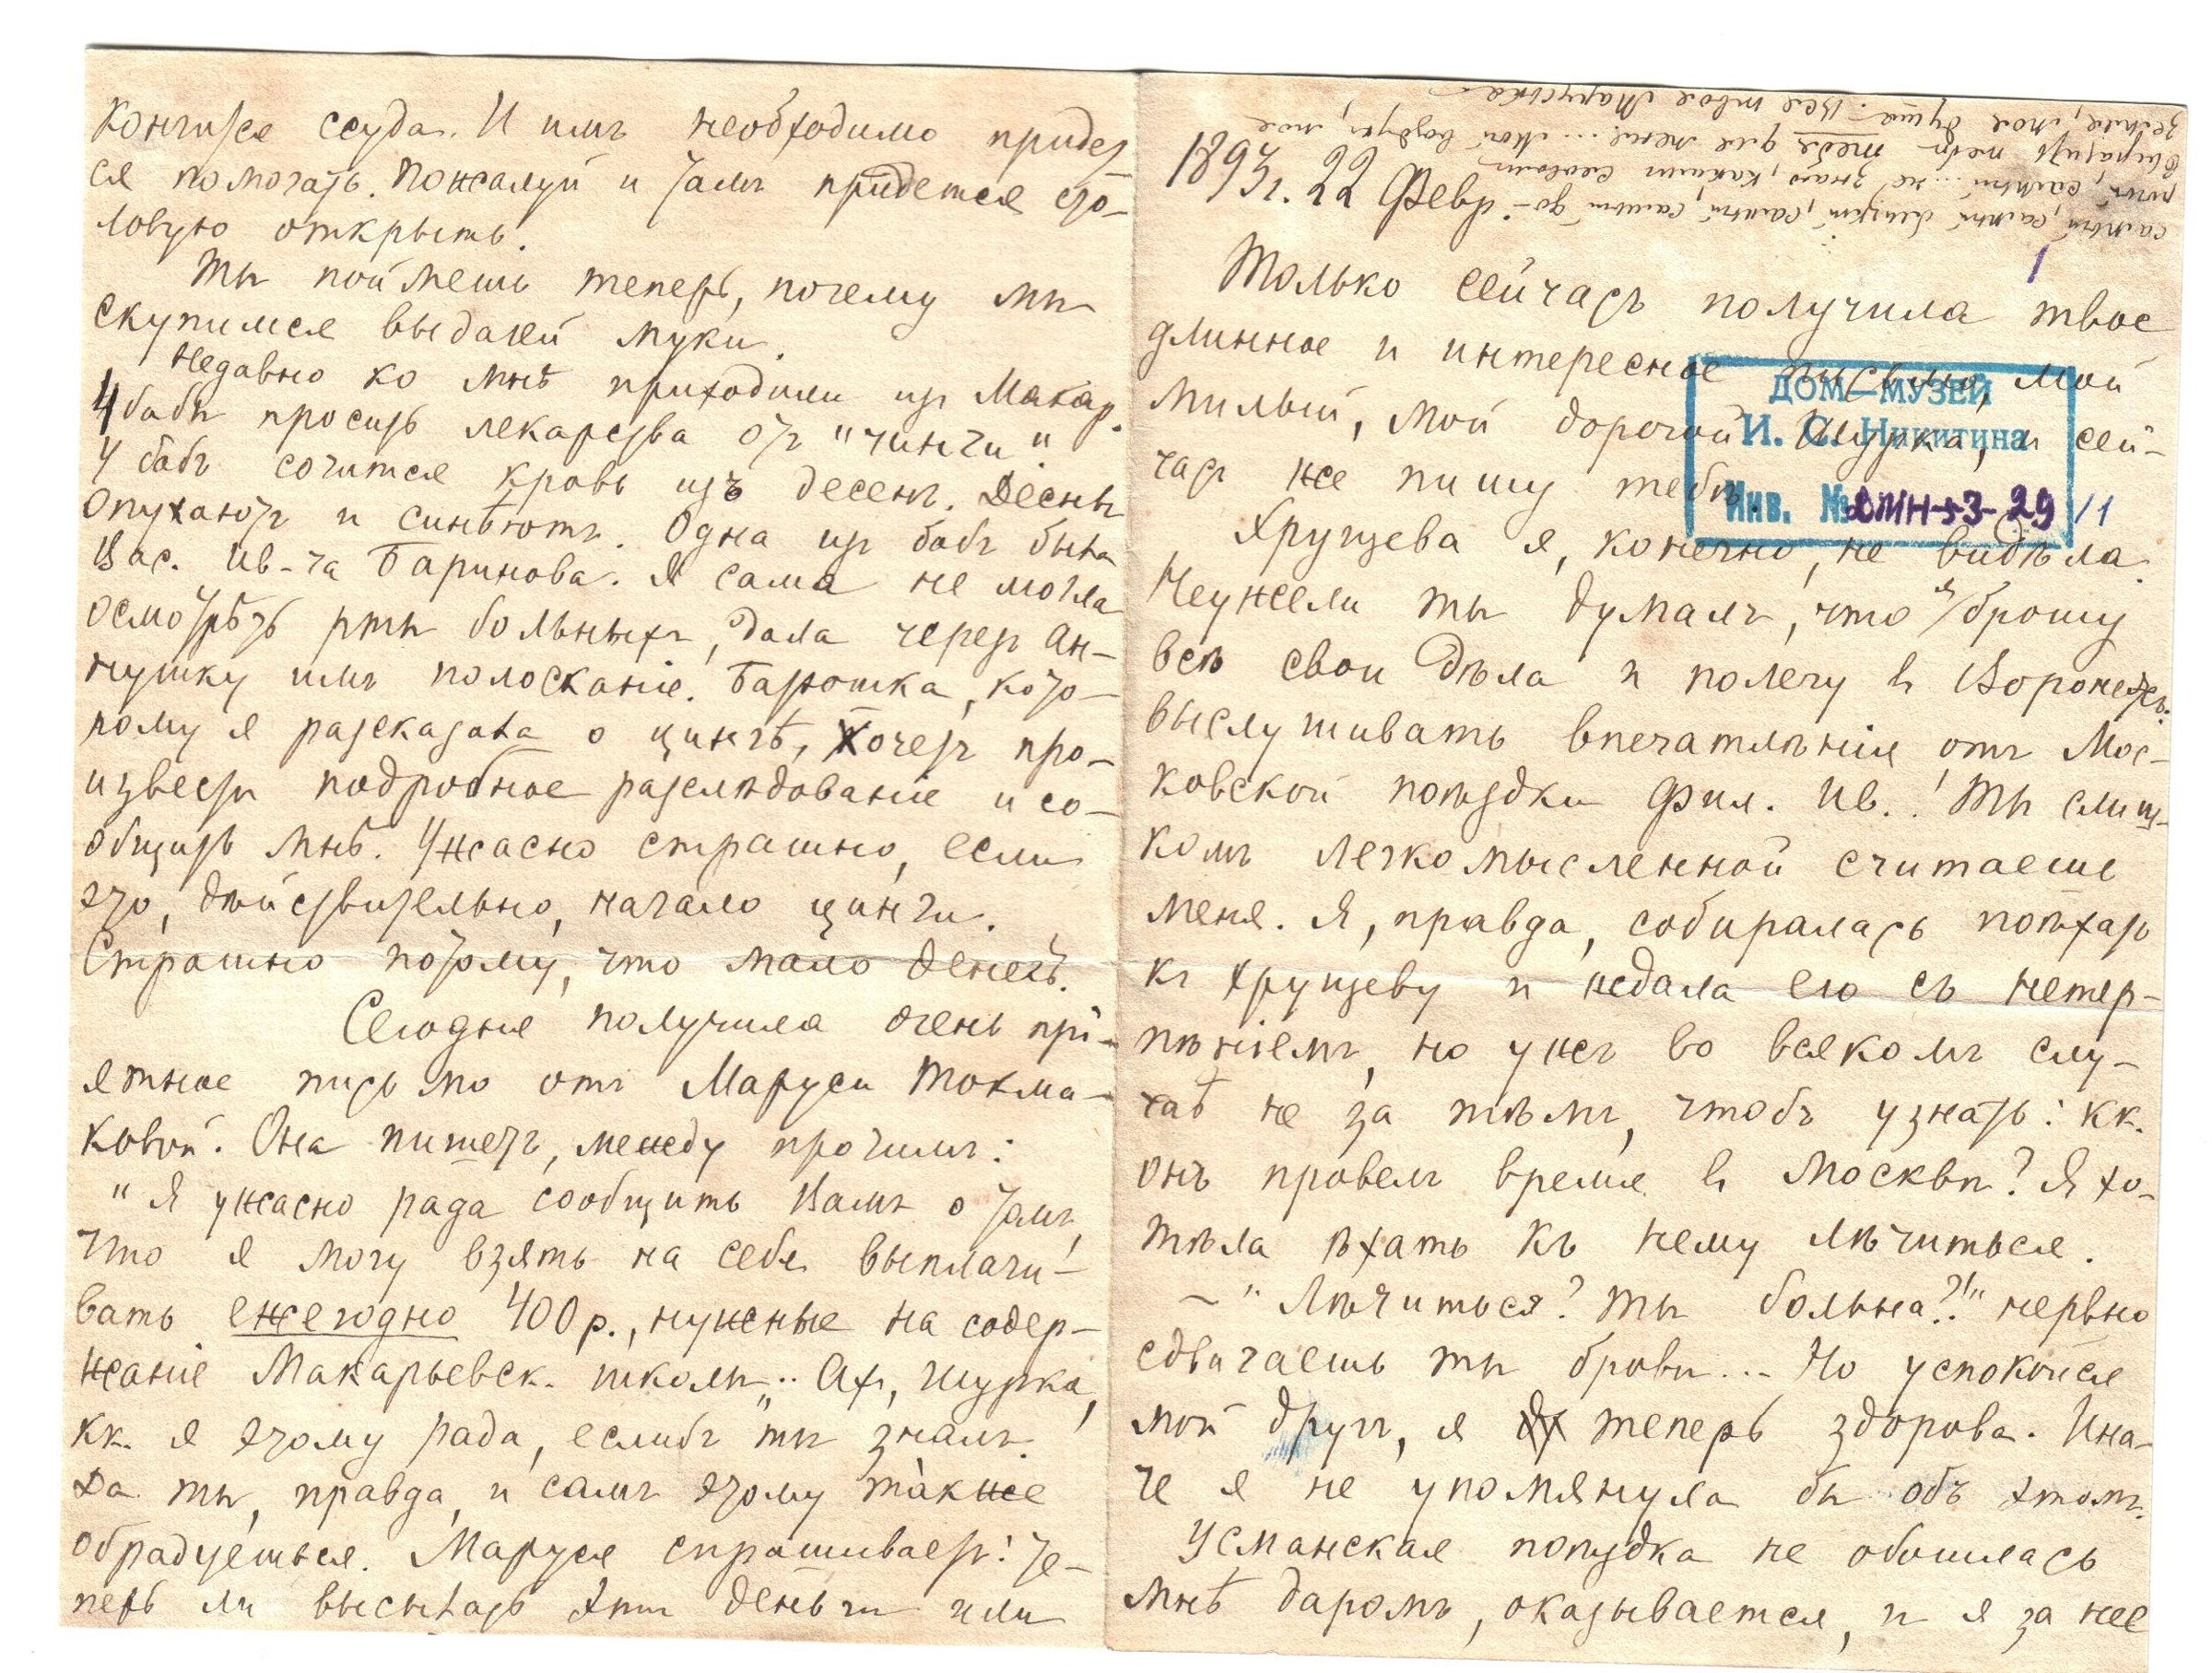 кончится ссуда. И имъ необходимо придет
ся помогать. Пожалуй и тамъ придется сто-
ловую открыть.
Ты поймешь теперь, почему мы
скупимся выдачей муки.
Недавно ко мнѣ приходили из Макар.
4 бабы просить лекарства от "чинги".
У бабъ сочится кровь изъ десенъ. Десны
опухаютъ и синѣютъ. Одна из бабъ была
Вас. Ив-ча Баринова. Я сама не могла
осмотрѣть рты больныхъ, дала через Ан-
нушку имъ полосканіе. Батюшка, кото-
рому я разсказала о цингѣ, хочетъ про-
извести подробное разслѣдованіе и со-
общить мнѣ. Ужасно страшно, если
это, дѣйствительно, начало цинги.
Страшно потому, что мало денегъ.
Сегодня получила очень прі-
ятное письмо отъ Маруси Токма-
ковой. Она пишетъ, между прочимъ:
"Я ужасно рада сообщить Вамъ о томъ,
что я могу взять на себя выплачи-
вать ежегодно 400 р., нужные на содер-
жаніе Макарьевск. школы".. Ах, Шурка,
кк. я этому рада, еслибъ ты зналъ!
Да ты, правда, и самъ этому также
обрадуешься. Маруся спрашиваетъ: те-
перь ли высылать эти деньги или
самый, самый близкій, самый, самый до-
рогой, самый... не знаю, какимъ словомъ
выразить тебѣ тебя для меня... Мой воздухъ, моя
земля, моя душа. Вся твоя Маруська
1897 г. 22 Февр.
1
Только сейчасъ получила твое
длинное и интересное письмо, мой
милый, мой дорогой Шурка, и сей-
часъ же пишу тебѣ.
ДОМ-МУЗЕЙ
И. С. Никитина
Инв. № ДМН-53-29/1
Хрущева я, конечно, не видѣла.
Неужели ты думалъ, что я брошу
всѣ свои дѣла и полечу в Воронежъ
выслушивать впечатлѣнія отъ Мос-
ковской поѣздки Фил. Ив.! Ты слиш-
комъ легкомысленной считаешь
меня. Я, правда, собиралась поѣхать
къ Хрущеву и ждала его съ нетер-
пѣніемъ, но ужъ во всякомъ слу-
чаѣ не за тѣмъ, чтобъ узнать: кк.
онъ провелъ время в Москвѣ? Я хо-
тѣла ѣхать къ нему лѣчиться.
– "Лѣчиться? Ты больна?!" нервно
сдвигаешь ты брови... Но успокойся
мой другъ, я теперь здорова. Ина-
че я не упомянула бы объ этомъ.
Усманская поѣздка не обошлась
мнѣ даромъ, оказывается, и я за нее